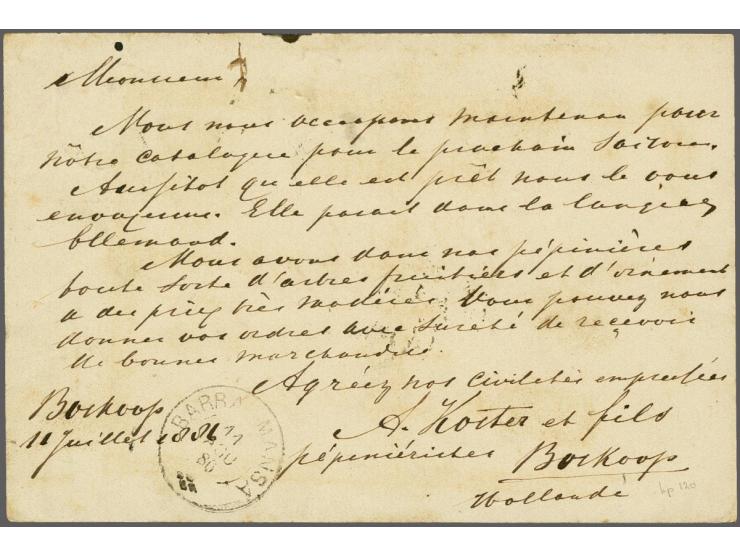 Monsieur
Nous nous occupons maintenan pour
nôtre catalogue pour le prochain Saison.
Aussitot qu'elle est prêt nous le vous
envoyerons. Elle parait dans la langue
Allemand.
Nous avons dans nos pépinières
toute sorte d'arbres fruitiers et d'ornement
a des prix très modérés. Vous pouvez nous
donner vos ordres avec sureté de reçevoir
de bonnes marchandise.
Agréez nos civilités empressées
Boskoop
11 Juillet 1886
A. Koster et fils
pépeniéristes Boskoop
Hollande
BARRA MANSA
hp 120